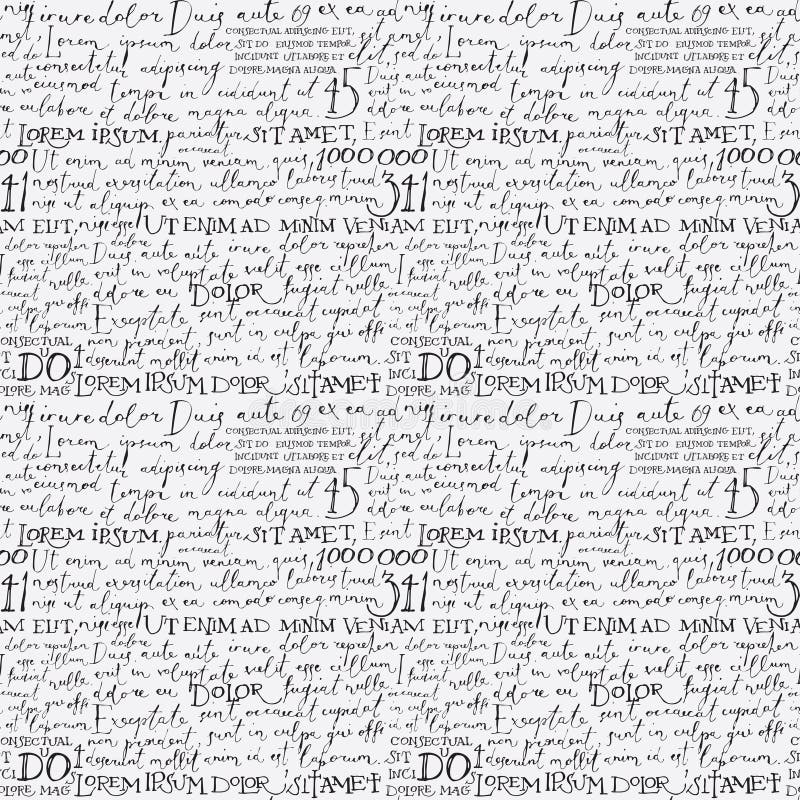 nisi irure dolor Duis aute 69 ex ea ad nisi irure dolor Duis aute 69 ex ea ad
Lorem ipsum dolor CONSECTUAL ADIPISCING ELIT, sit amet, Lorem ipsum dolor CONSECTUAL ADIPISCING ELIT,
SIT DO EIUSMOD TEMPOR elit, sed SIT DO EIUSMOD TEMPOR elit, sed
consectetur adipiscing INCIDUNT UT LABORE ET consectetur adipiscing INCIDUNT UT LABORE ET
DOLORE MAGNA ALIQUA. Duis aute DOLORE MAGNA ALIQUA. Duis
eiusmod tempi in cididunt ut 45 erit in vo eiusmod tempi in cididunt ut 45 erit in
dore eu labore et dolore magna aliqua. dore eu labore et dolore magna aliqua. dore eu
LOREM IPSUM. pariatur SIT AMET, E sunt LOREM IPSUM. pariatur SIT AMET, E sunt
occaecat occaecat
000 Ut enim ad minim veniam, quis, 1000 000 Ut enim ad minim veniam, quis, 1000 000
341 nostrud exersitation ullamco laboris trud 341 nostrud exersitation ullamco laboris trud 3
nisi ut aliquip ex ea comodo conseq minim nisi ut aliquip ex ea comodo conseq minim
AM ELIT, nisi esse UT ENIM AD MINIM VENIAM ELIT, nisi esse UT ENIM AD MINIM VENI
dolor reprehen dolore Duis aute aute irure dolor reprehen dolore Duis aute aute irure dolor
esse cillum erit in voluptate velit esse cillum esse cillum erit in voluptate velit esse cillum
fugiat nulla ddore eu DOLOR fugiat nulla fugiat nulla ddore eu DOLOR fugiat nulla
occaecat occaecat
culpa qui offi Exceptate sint occaecat cupidat culpa qui offi Exceptate sint occaecat cupidat
id est laborum non proident, sunt in culpa qui offi id est laborum non proident, sunt in culpa qui offi
CONSECTUAL DUO 4 deserunt mollit anim id est laborum. CONSECTUAL DUO 4 deserunt mollit anim id est laborum.
DOLORE MAG LOREM IPSUM DOLOR SIT AMET DOLORE MAG LOREM IPSUM DOLOR SIT AMET
nisi irure dolor Duis aute 69 ex ea ad nisi irure dolor Duis aute 69 ex ea ad
Lorem ipsum dolor CONSECTUAL ADIPISCING ELIT, sit amet, Lorem ipsum dolor CONSECTUAL ADIPISCING ELIT,
SIT DO EIUSMOD TEMPOR elit, sed SIT DO EIUSMOD TEMPOR elit, sed
consectetur adipiscing INCIDUNT UT LABORE ET consectetur adipiscing INCIDUNT UT LABORE ET
DOLORE MAGNA ALIQUA. Duis aute DOLORE MAGNA ALIQUA. Duis
eiusmod tempi in cididunt ut 45 erit in vo eiusmod tempi in cididunt ut 45 erit in
dore eu labore et dolore magna aliqua. dore eu labore et dolore magna aliqua. dore eu
LOREM IPSUM. pariatur SIT AMET, E sunt LOREM IPSUM. pariatur SIT AMET, E sunt
occaecat occaecat
000 Ut enim ad minim veniam, quis, 1000 000 Ut enim ad minim veniam, quis, 1000 000
341 nostrud exersitation ullamco laboris trud 341 nostrud exersitation ullamco laboris trud 3
nisi ut aliquip ex ea comodo conseq minim nisi ut aliquip ex ea comodo conseq minim
AM ELIT, nisi esse UT ENIM AD MINIM VENIAM ELIT, nisi esse UT ENIM AD MINIM VENI
dolor reprehen dolore Duis aute aute irure dolor reprehen dolore Duis aute aute irure dolor
esse cillum erit in voluptate velit esse cillum esse cillum erit in voluptate velit esse cillum
fugiat nulla ddore eu DOLOR fugiat nulla fugiat nulla ddore eu DOLOR fugiat nulla
occaecat occaecat
culpa qui offi Exceptate sint occaecat cupidat culpa qui offi Exceptate sint occaecat cupidat
id est laborum non proident, sunt in culpa qui offi id est laborum non proident, sunt in culpa qui offi
CONSECTUAL DUO 4 deserunt mollit anim id est laborum. CONSECTUAL DUO 4 deserunt mollit anim id est laborum.
DOLORE MAG LOREM IPSUM DOLOR SIT AMET DOLORE MAG LOREM IPSUM DOLOR SIT AMET